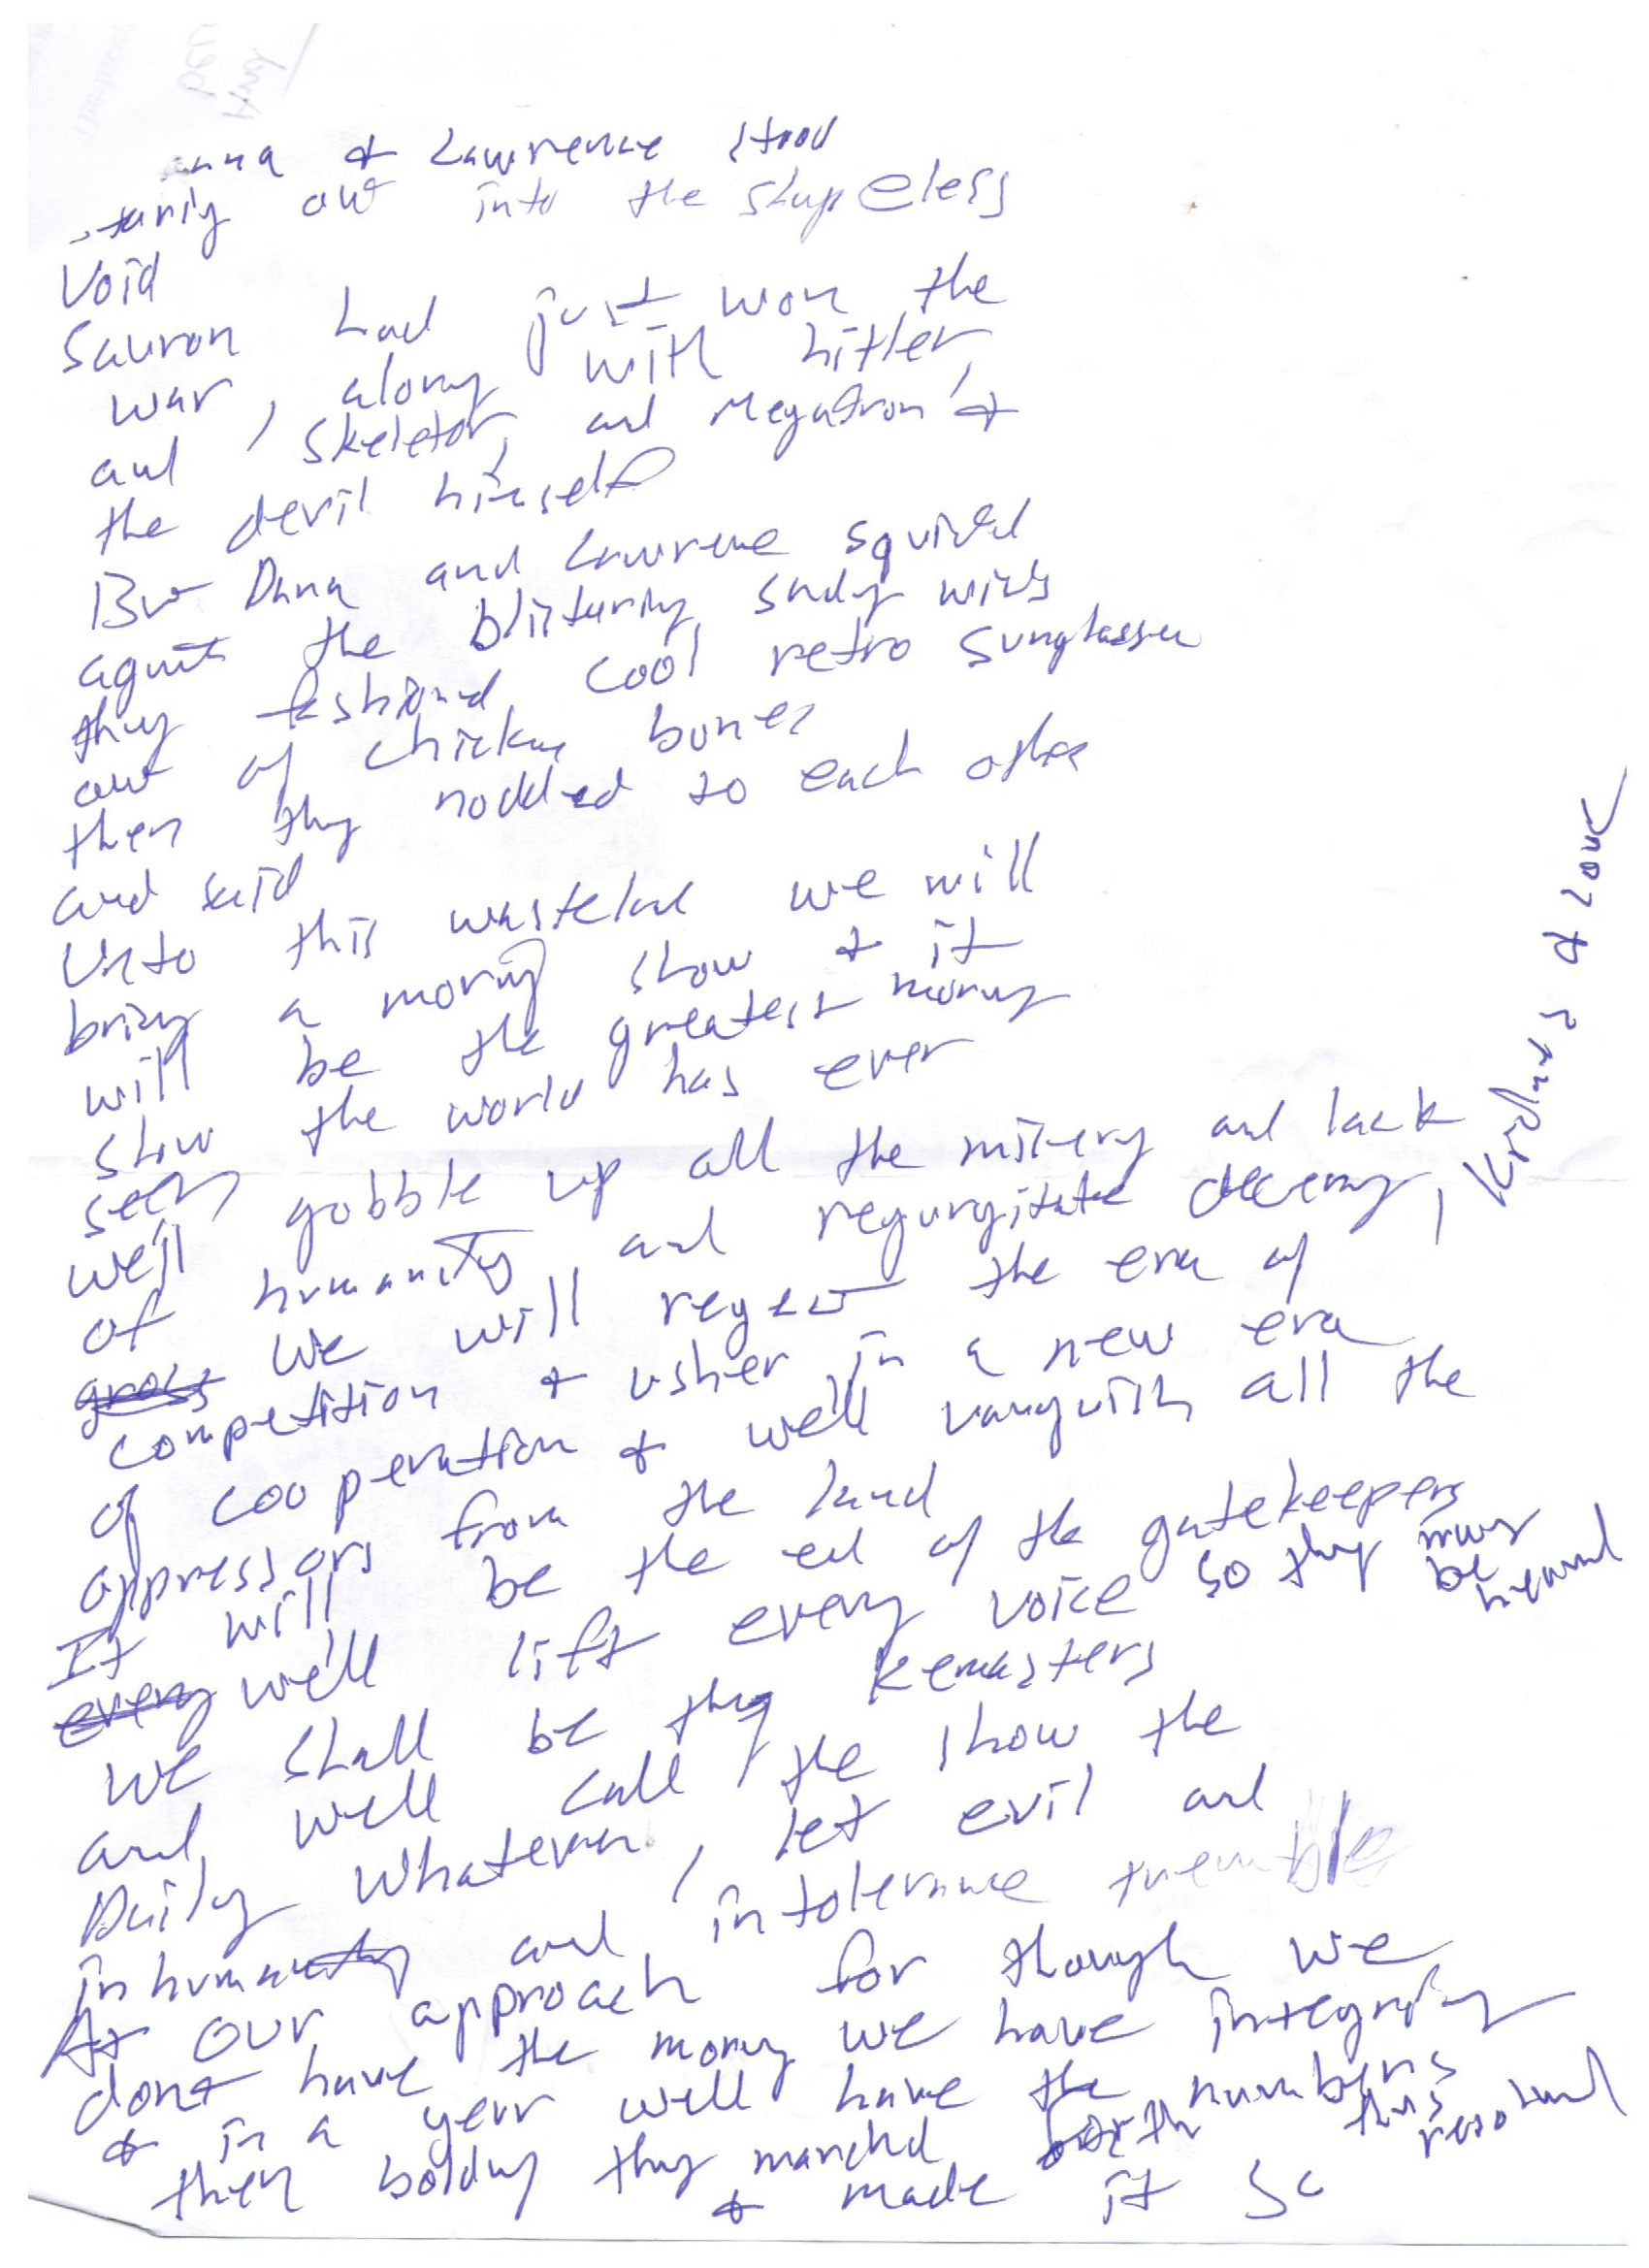 anna & Lawrence stood
staring out into the shapeless
Void
Sauron had just won the
war, along with hitler,
and skeletor, and Megatron &
the devil himself
But Dana and Lawrence squinted
against the blistering sandy winds
they fashioned cool retro sunglasses
out of chicken bones
then they nodded to each other
and said
Unto this wasteland we will
bring a morning show & it
will be the greatest morning
show the world has ever
seen
we'll gobble up all the misery and lack
of humanity and regurgitate decency, kindness & love
gross We will reject the era of
competition & usher in a new era
of cooperation & we'll vanquish all the
oppressors from the land
It will be the end of the gatekeepers
every we'll lift every voice so they may be heard
We shall be they Remasters
and we'll call the show the
Daily Whatever, let evil and
inhumanity and intolerance tremble
At our approach for though we
dont have the money we have integrity
& in a year we'll have the numbers
then boldly they marched forth thus resolved
& made it so